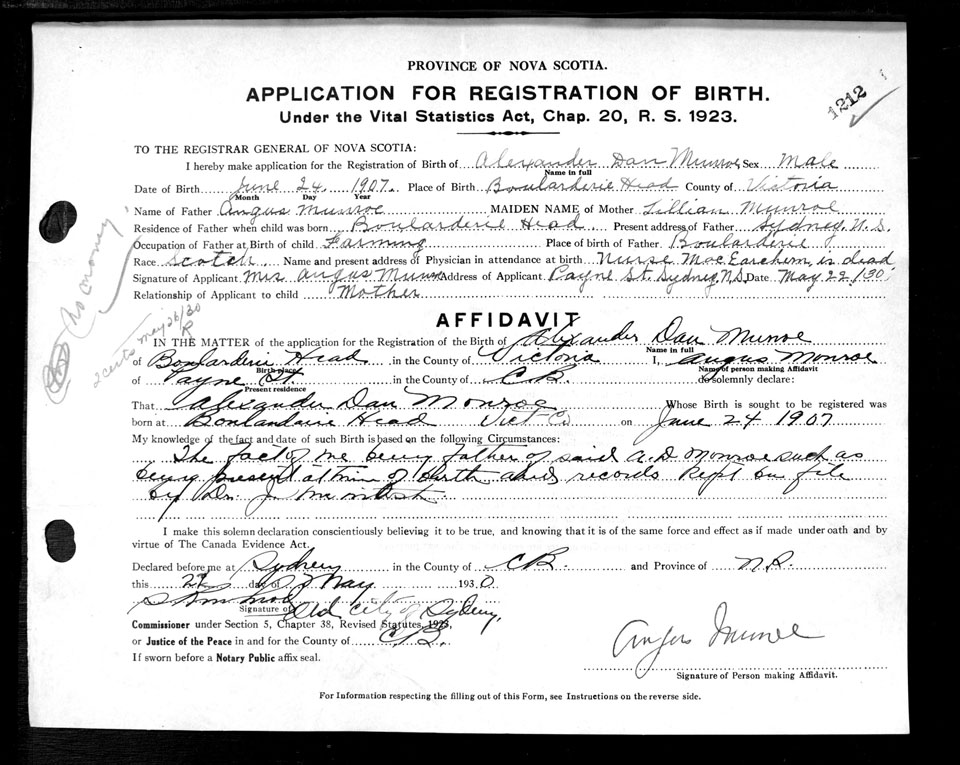 PROVINCE OF NOVA SCOTIA.
APPLICATION FOR REGISTRATION OF BIRTH.
1212
Under the Vital Statistics Act, Chap. 20, R. S. 1923.
TO THE REGISTRAR GENERAL OF NOVA SCOTIA:
I hereby make application for the Registration of Birth of Alexander Dan Munroe Sex Male
Name in full
Date of Birth June 24 1907. Place of Birth Boularderie Head County of Victoria
Month Day Year
Name of Father Angus Munroe MAIDEN NAME of Mother Lillian Munroe
Residence of Father when child was born Boularderie Head Present address of Father Sydney, N.S.
Occupation of Father at Birth of child Farming Place of birth of Father Boularderie
Race Scotch Name and present address of Physician in attendance at birth Nurse MacEachern is dead
Signature of Applicant Mrs Angus Munroe Address of Applicant Payne St. Sydney, N.S. Date May 22, 30
Relationship of Applicant to child Mother
No money
2 certs May 26/30
R
AFFIDAVIT
IN THE MATTER of the application for the Registration of the Birth of Alexander Dan Munroe
Name in full
of Boularderie Head in the County of Victoria I, Angus Monroe
Birth place Name of person making Affidavit
of Payne St. in the County of C.B. do solemnly declare:
Present residence
That Alexander Dan Monroe Whose Birth is sought to be registered was
born at Boulandarie Head Vict Co on June 24 1907
My knowledge of the fact and date of such Birth is based on the following Circumstances:
The fact of me being Father of said A. D. Monroe such as
being present at time of Birth records kept on file
by Dr. J.
I make this solemn declaration conscientiously believing it to be true, and knowing that it is of the same force and effect as if made under oath and by
virtue of The Canada Evidence Act.
Declared before me at Sydney in the County of C.B. and Province of N.S.
this day of May 1930
Signature of City of Sydney,
Commissioner under Section 5, Chapter 38, Revised Statutes, 1923,
or Justice of the Peace in and for the County of C.B.
Angus Munroe
If sworn before a Notary Public affix seal.
Signature of Person making Affidavit.
For Information respecting the filling out of this Form, see Instructions on the reverse side.